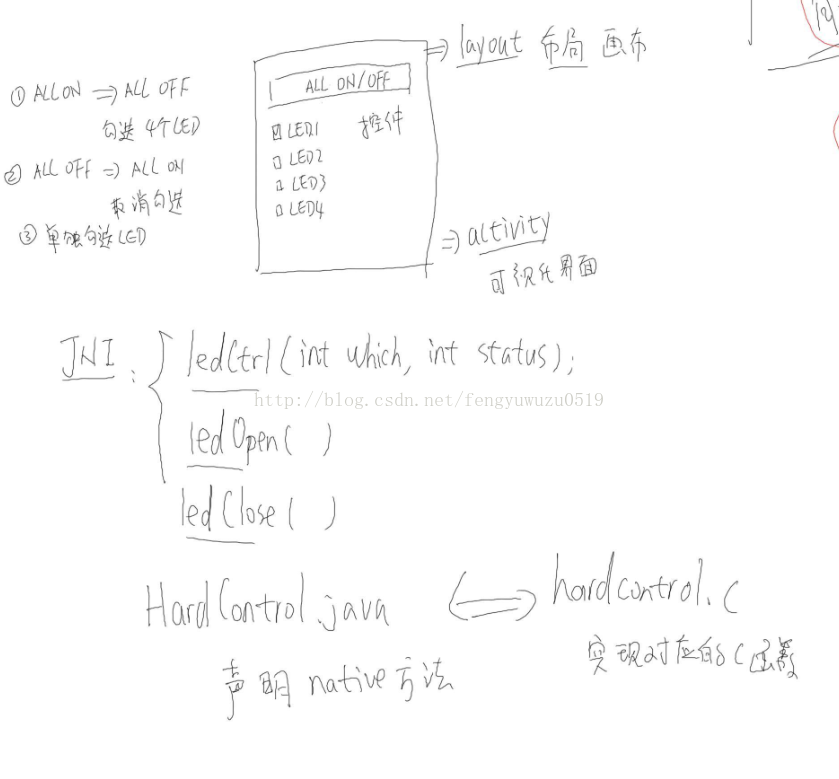 ① ALL ON => ALL OFF
勾选 4个LED
② ALL OFF => ALL ON
取消勾选
③ 单独勾选LED
ALL ON/OFF
LED1 控件
LED2
LED3
LED4
=> layout 布局 画布
=> activity
可视化界面
JNI : { ledCtrl(int which, int status);
http://blog.csdn.net/fengyuwuzu0519
ledOpen( )
ledClose( )
HardControl.java <=> hardcontrol.c
声明 native方法
实现对应的C函数